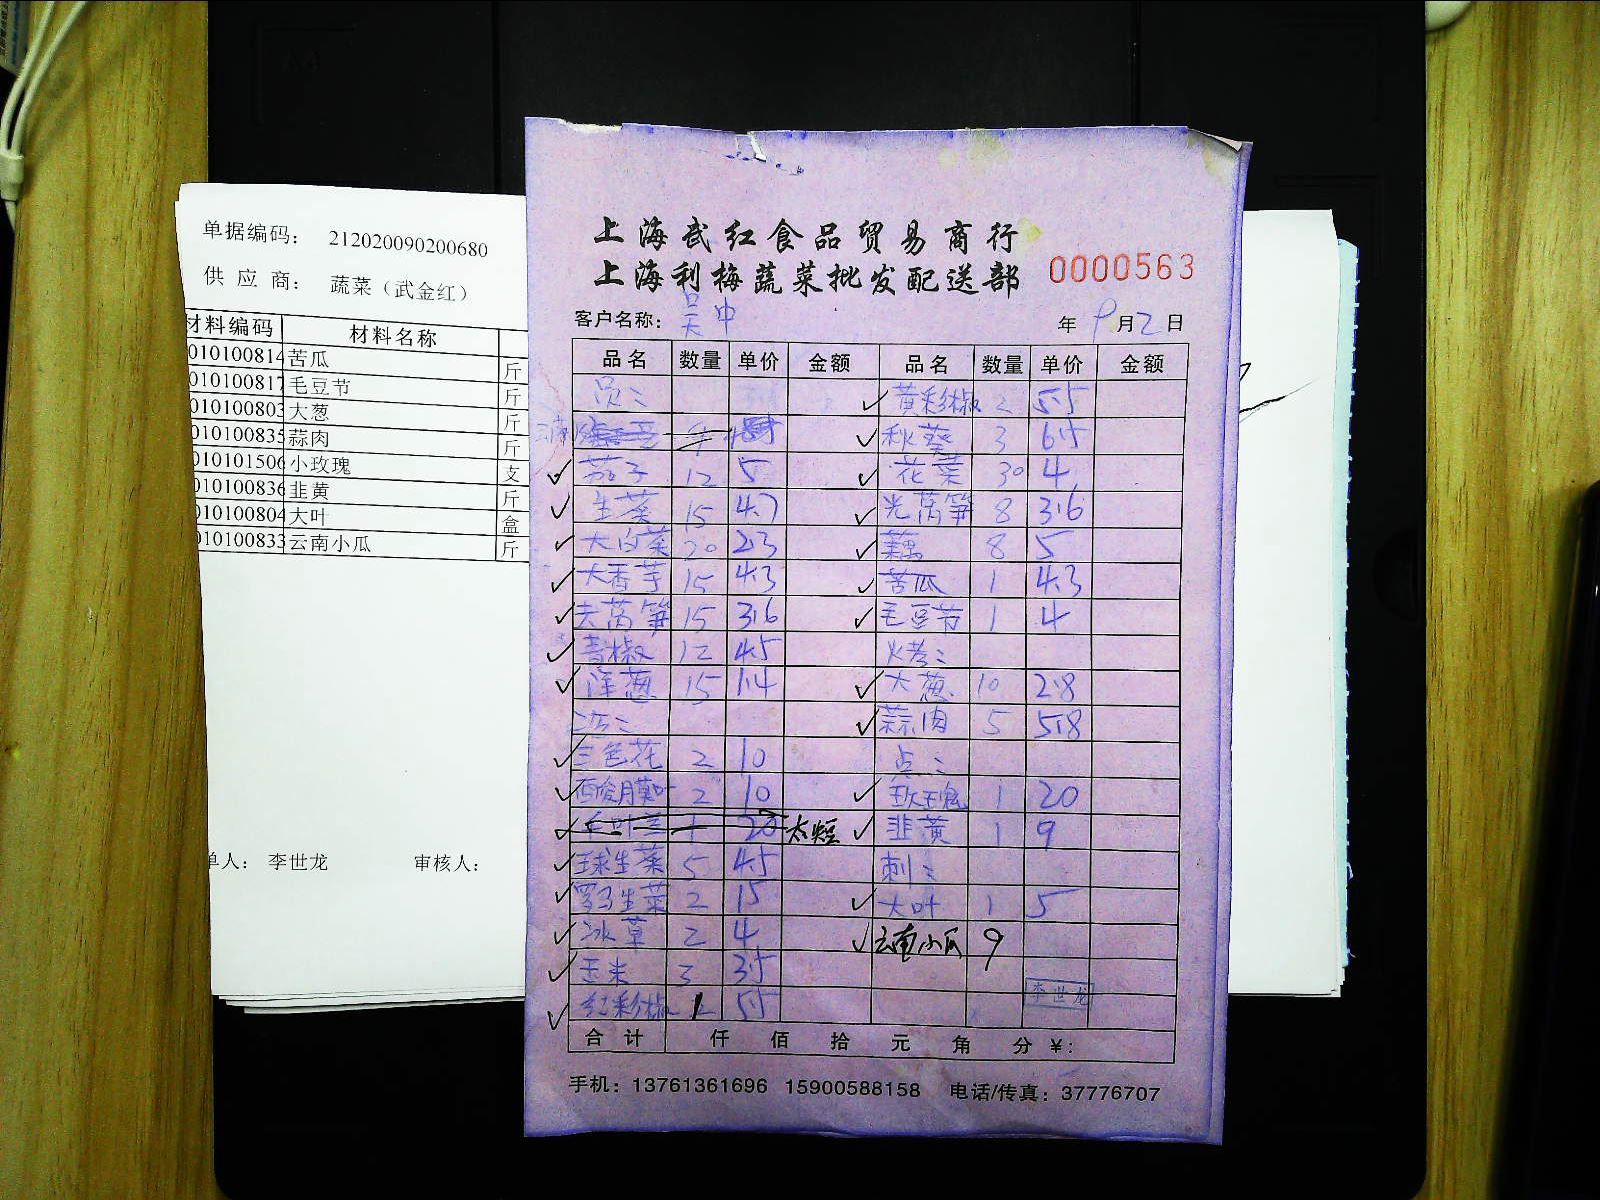 单据编码： 212020090200680
供 应 商： 蔬菜（武金红）
材料编码 材料名称
010100814 苦瓜 斤
010100817 毛豆节 斤
010100803 大葱 斤
010100835 蒜肉 斤
010101506 小玫瑰 支
010100836 韭黄 斤
010100804 大叶 盒
010100833 云南小瓜 斤
单人： 李世龙 审核人：
上海武红食品贸易商行
上海利梅蔬菜批发配送部 0000563
客户名称： 吴中 年 9月2日
品名 数量 单价 金额 品名 数量 单价 金额
黄彩椒 2 5.5
秋葵 3 6.5
茄子 12 5 花菜 30 4
生菜 15 4.7 光莴笋 8 3.6
大白菜 20 2.3 藕 8 5
大香芋 15 4.3 苦瓜 1 4.3
去莴笋 15 3.6 毛豆节 1 4
青椒 12 4.5 火考：
洋葱 15 1.4 大葱 10 2.8
蒜肉 5 5.8
三色花 2 10 点：
酸膜叶 2 10 玫瑰 1 20
1 20 太短 韭黄 1 9
球生菜 5 4.5 刺：
罗马生菜 2 15 大叶 1 5
冰草 2 4 云南小瓜 9
玉米 3 3.5
红彩椒 1 5.5 李世龙
合 计 仟 佰 拾 元 角 分 ¥：
手机：13761361696 15900588158 电话/传真：37776707